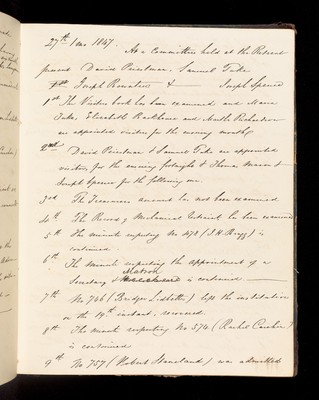 27th 1 mo 1847.
At a Committee held at the Retreat
present David Priestman, Samuel Tuke
Joseph Rowntree & Joseph Spence
1st The Visitors book has been examined and Maria
Tuke, Elizabeth Backhouse and Richardson
are appointed visitors for the ensuing month
2nd David Priestman & Samuel Tuke are appointed
visitors for the ensuing fortnight & Thomas &
Joseph Spence for the following one.
3rd The Treasurers account has not been examined
4th The Receiving & Mechanical Interest has been examined
5th The minute respecting No 478 (J.H. ) is
continued
6th The minute respecting the appointment of a
Matron
Secretary & is continued
7th No 746 (Bridget Lidbetter) left the institution
on the 19th instant, recovered
8th The minute respecting No 574 (Rachel )
is continued
9th No 757 (Robert ) was admitted